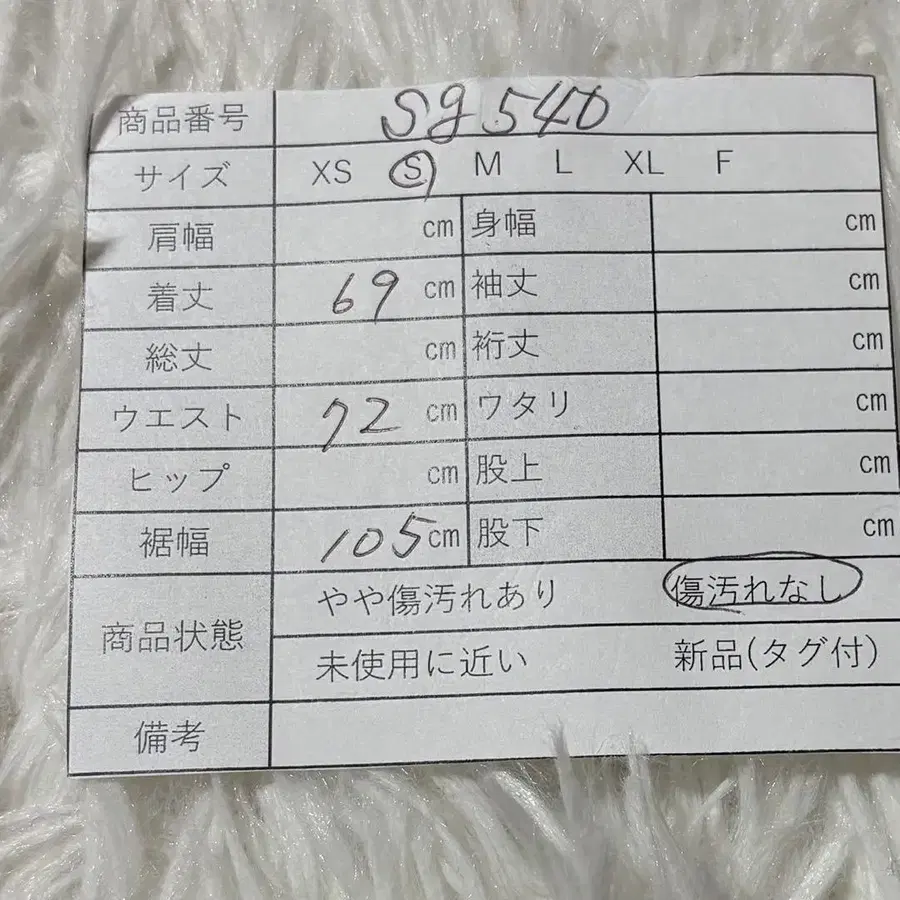 商品番号 sg540
サイズ XS S M L XL F
肩幅 cm 身幅 cm
着丈 69 cm 袖丈 cm
総丈 cm 裄丈 cm
ウエスト 72 cm ワタリ cm
ヒップ cm 股上 cm
裾幅 105 cm 股下 cm
商品状態 やや傷汚れあり 傷汚れなし
未使用に近い 新品(タグ付)
備考